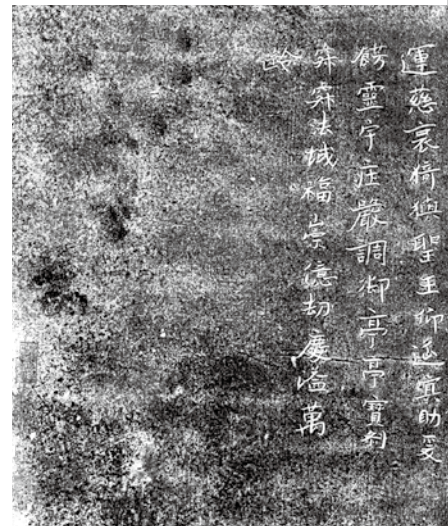 運慈哀猗與聖主仰遵冥助爰
餝靈宇庄嚴調御亭亭寶刹
弈弈法城福崇億劫慶溢萬
齡